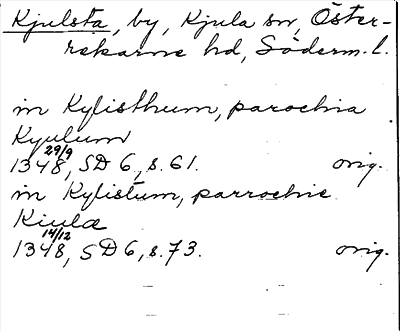 Kjulsta, by, Kjula sn, Öster-
rekarne hd, Söderm. l.
in Kylisthum, parochia
Kyulum
1348 29/9, SD 6, s. 61. orig.
in Kylistum, parrochie
Kiulæ
1348 14/12, SD 6, s. 73. orig.